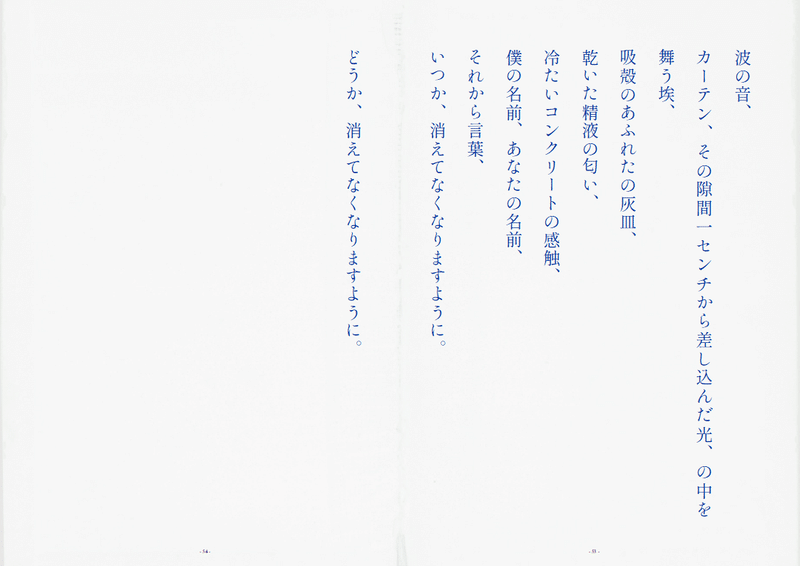 波の音、
カーテン、その隙間一センチから差し込んだ光、の中を
舞う埃、
吸殻のあふれたの灰皿、
乾いた精液の匂い、
冷たいコンクリートの感触、
僕の名前、あなたの名前、
それから言葉、
いつか、消えてなくなりますように。
どうか、消えてなくなりますように。